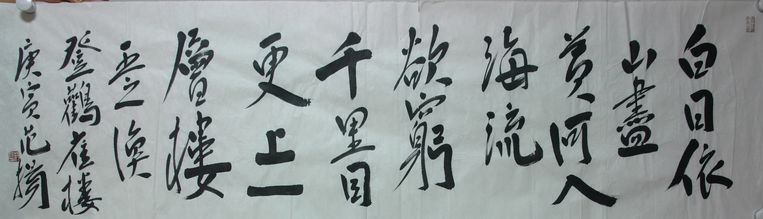 白日依
山盡
黄河入
海流
欲窮
千里目
更上一
層樓
王之渙
登鸛雀樓
庚寅范